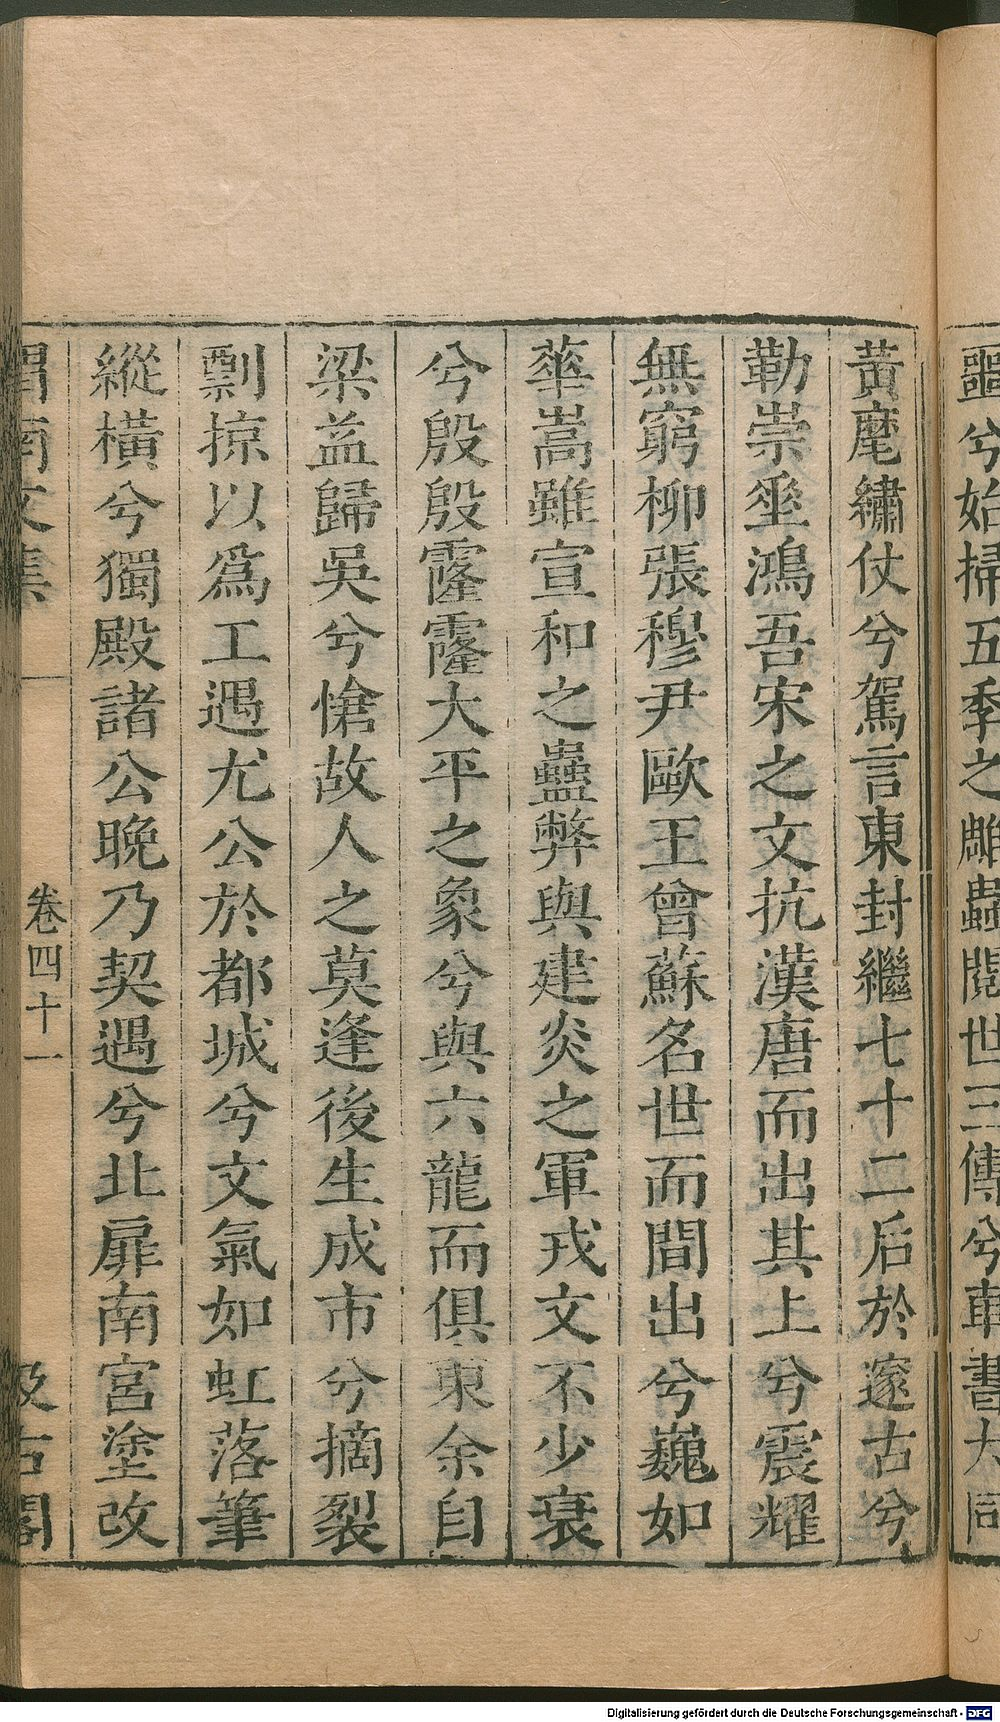 噩兮始掃五季之雕蟲閱世三傳兮車書大同
黃麾繡仗兮駕言東封繼七十二后於邃古兮
勒崇垂鴻吾宋之文抗漢唐而出其上兮震耀
無窮柳張穆尹歐王曾蘇名世而間出兮巍如
華嵩雖宣和之蠱弊與建炎之軍戎文不少衰
兮殷殷霳霳大平之象兮與六龍而俱東余自
梁益歸吳兮愴故人之莫逢後生成市兮摘裂
剽掠以爲工遇尤公於都城兮文氣如虹落筆
縱橫兮獨殿諸公晚乃契遇兮北扉南宮塗改
渭南文集 卷四十一 汲古閣
Digitalisierung gefördert durch die Deutsche Forschungsgemeinschaft - DFG